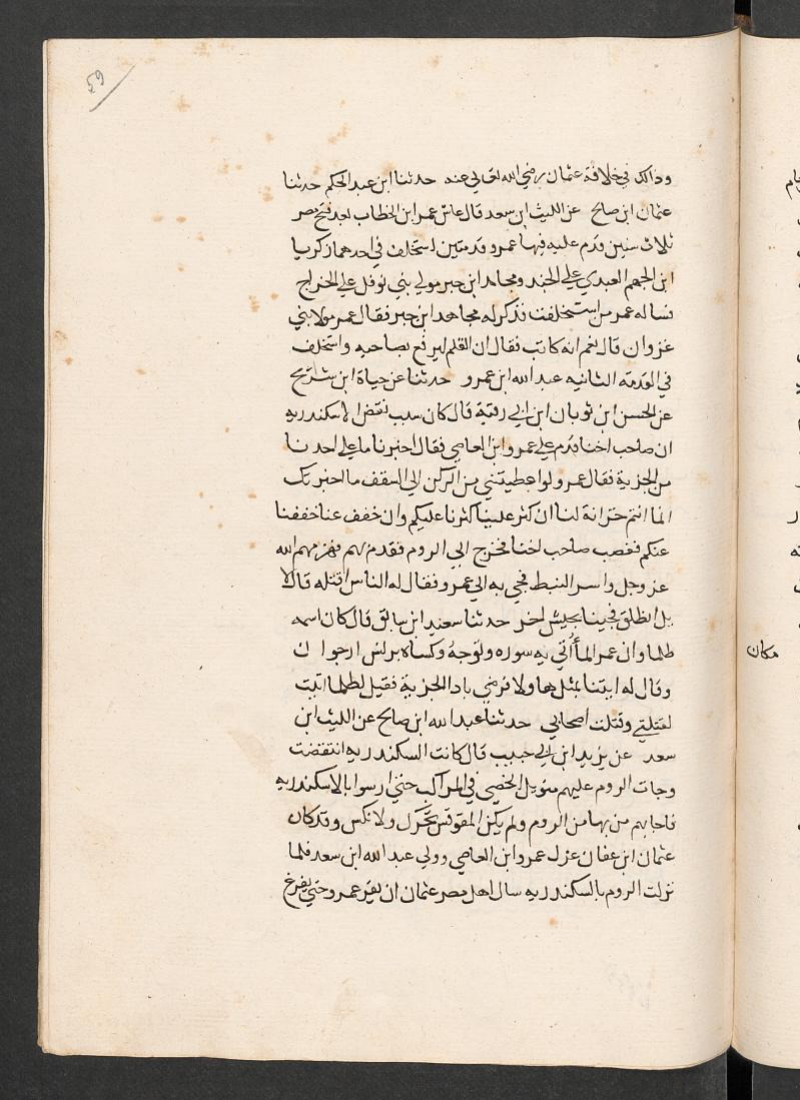 59
وذالك في خلافة عثمان رضي الله تعالي عنه حدثنا ابن عبد الحكم حدثنا
عثمان ابن صالح عن الليث ابن سعد قال عاش عمر ابن الخطاب بعد فتح مصر
ثلاث سنين قدم عليه فيها عمرو قدمتين استخلف في احدهما زكريا
ابن الجهم العبدي علي الجند ومجاهد ابن جبر مولي بني نوفل علي الخراج
فساله عمر من استخلفت فذكر له مجاهد ابن جبر فقال عمر مولا بني
غزوان قال نعم انه كاتب فقال ان القلم ليرفع بصاحبه واستخلف
في القدمة الثانيه عبد الله ابن عمرو حدثنا عن حياة ابن شريح
عن الحسن ابن ثوبان ابن ابي رقية قال كان سبب نقض الاسكندريه
ان صاحب اخنا قدم علي عمرو ابن العاصي فقال اخبرنا ما علي احدنا
من الجزية فقال عمرو لو اعطيتني من الركن الي السقف ما اخبرتك
انما انتم خزانة لنا ان كثر علينا كثرنا عليكم وان خفف عنا خففنا
عنكم فغضب صاحب اخنا فخرج الي الروم فقدم بهم فهزمهم الله
عز وجل واسر النبط فجي به الي عمرو فقال له الناس اقتله قال لا
بل انطلق فجينا بجيش اخر حدثنا سعيد ابن سابق قال كان اسمه
طلما وان عمر لما أتي به سوره وتوجه وكساه برنس ارجوان
وقال له ايتنا بمثل هاولا فرضي باداء الجزية فقيل لطلما اتيت
لقتلتي وقتلت اصحابي حدثنا عبد الله ابن صالح عن الليث ابن
سعد عن يزيد ابن ابي حبيب قال كانت السكندريه انتقضت
وجات الروم عليهم منويل الخصي في المراكب حتي ارسوا بالاسكندريه
فاجابهم من بها من الروم ولم يكن المقوقس تحرك ولا نكس وقد كان
عثمان ابن عفان عزل عمرو ابن العاصي وولي عبد الله ابن سعد فلما
نزلت الروم بالسكندريه سال اهل مصر عثمان ان يقر عمرو حتي يفرغ
مكان